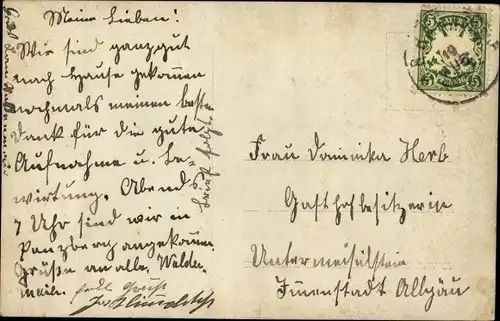 Meine Lieben!
Wir sind ganz gut
nach Hause gekommen
nochmals meinen besten
Dank für die gute
Aufnahme u. Be-
wirtung. Abends
7 Uhr sind wir in
Penzberg angekommen
Grüße an alle, Walder-
maile.
Brief folgt
5 5
Frau Dominika Herb
Gasthofbesitzerin
Untermeiselstein
Immenstadt Allgäu